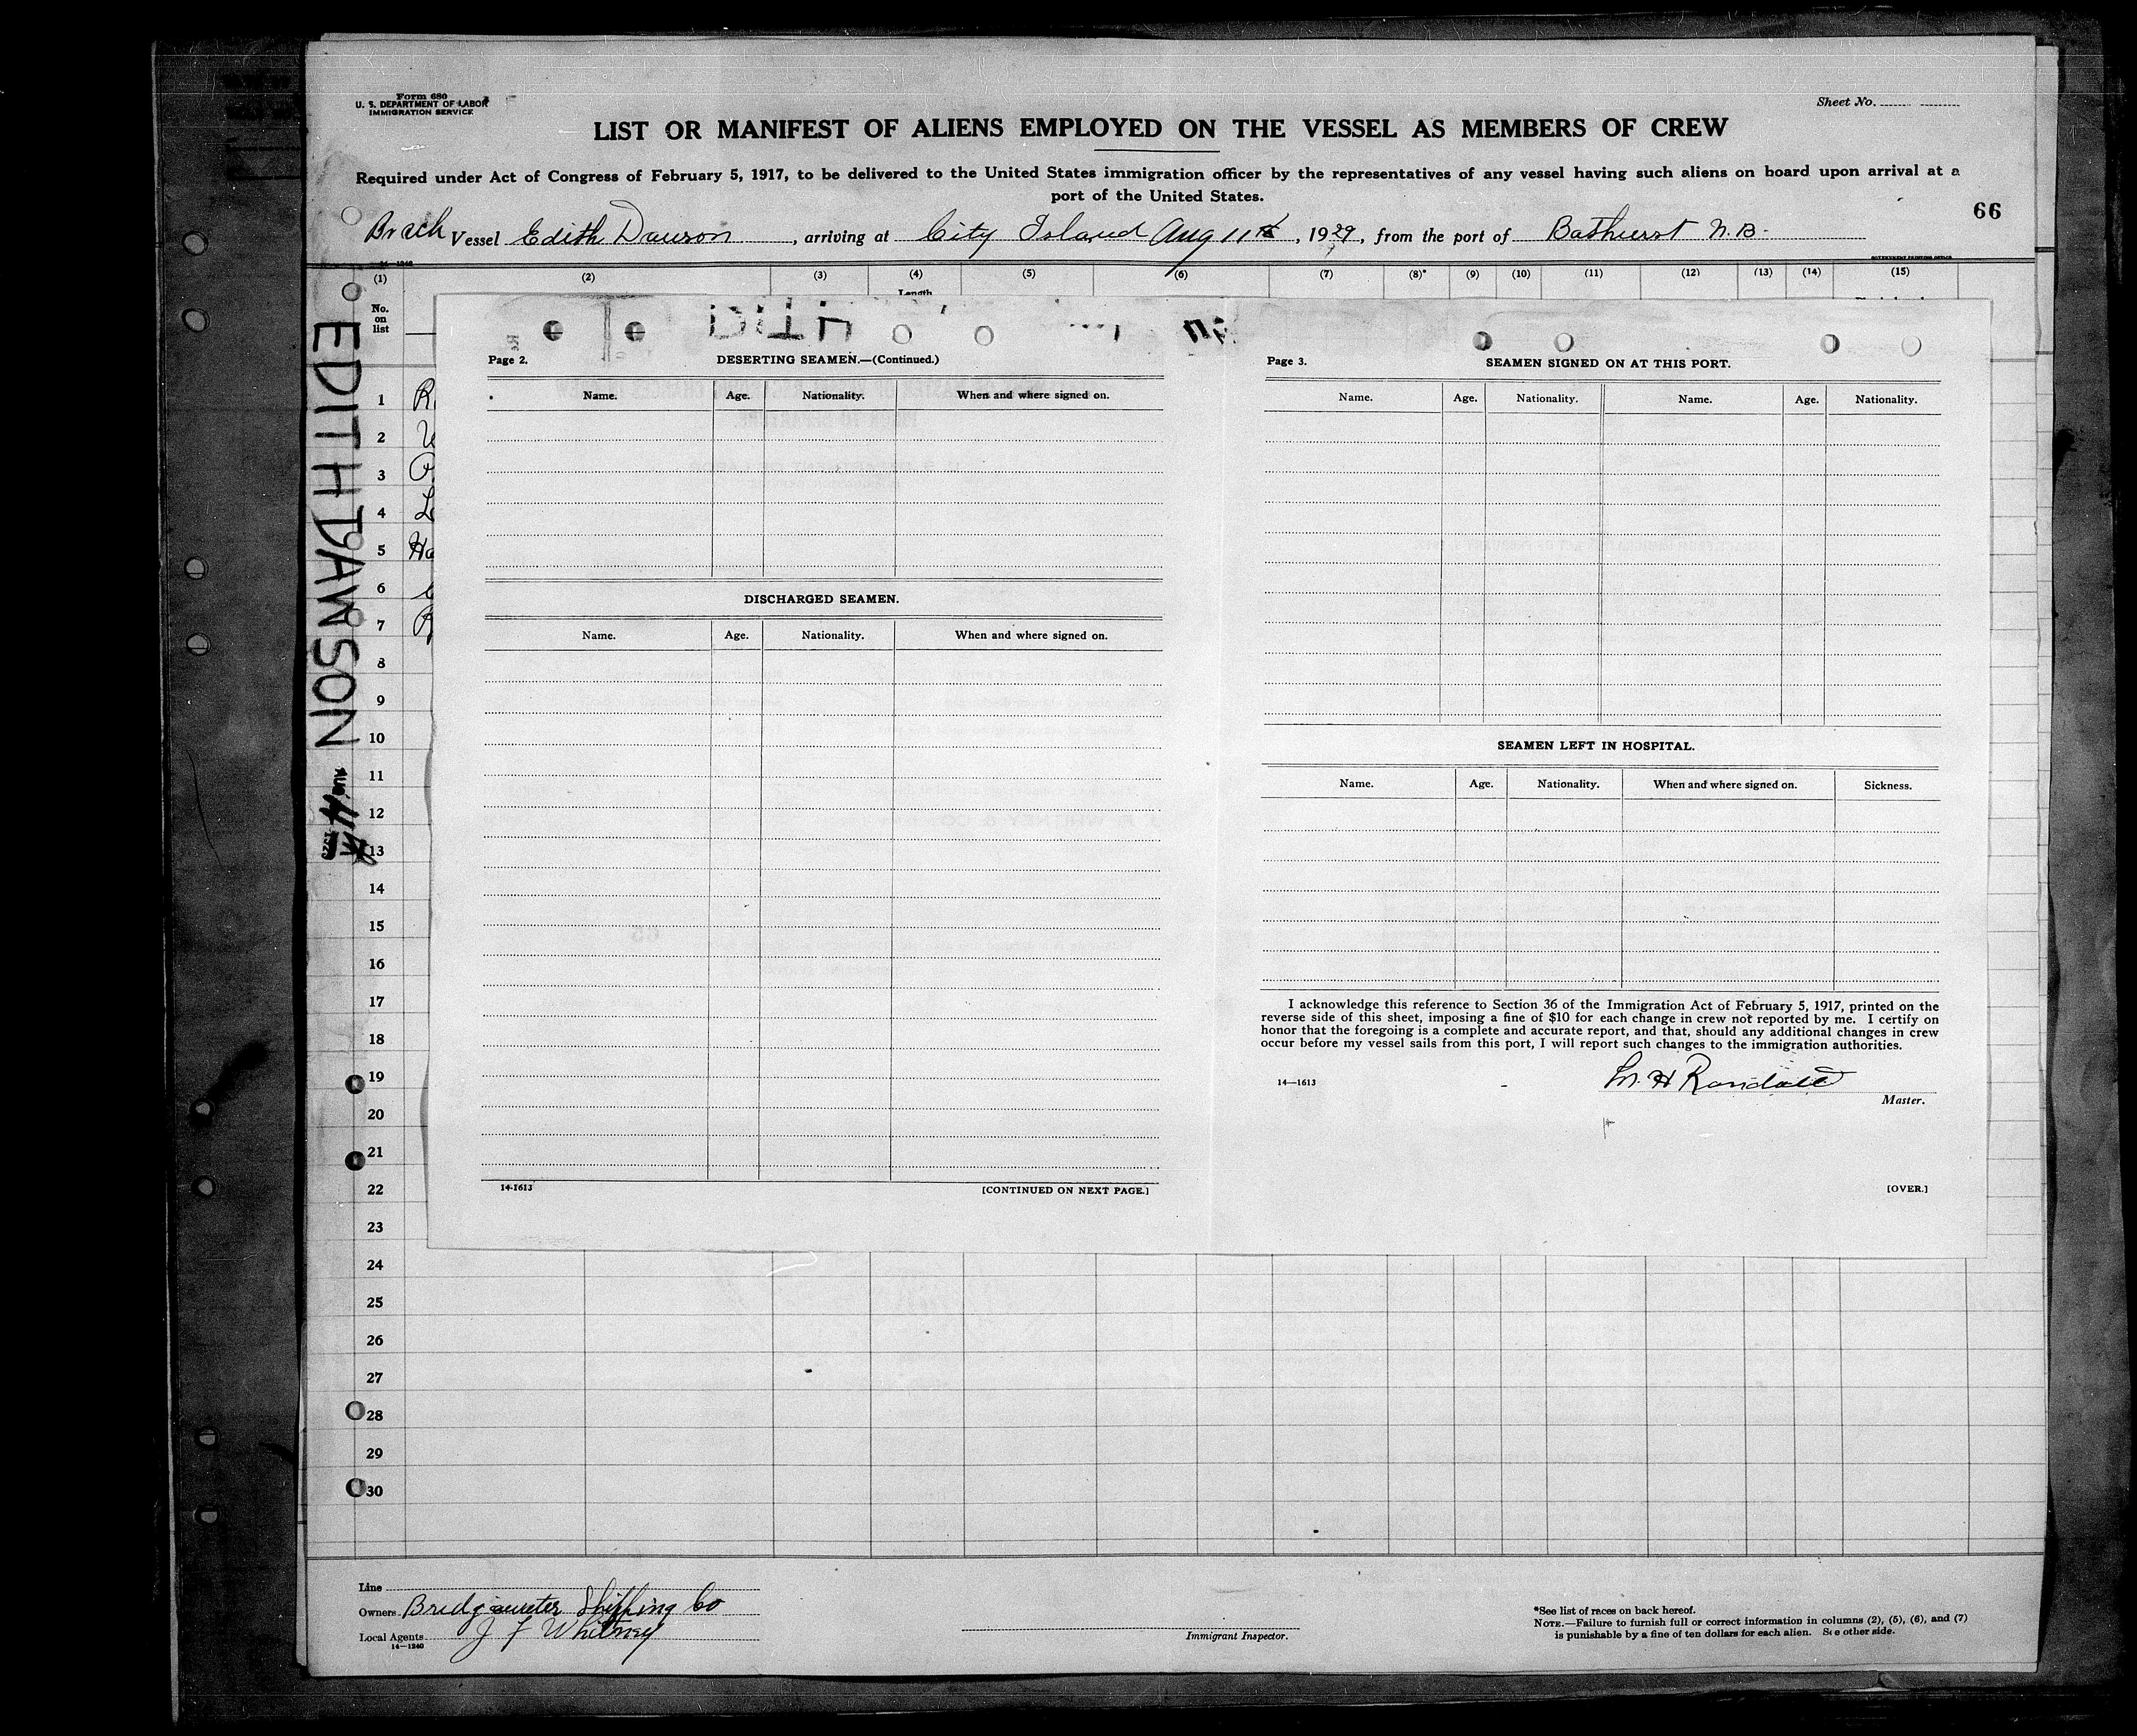 Form 680
U. S. DEPARTMENT OF LABOR
IMMIGRATION SERVICE
Sheet No.
LIST OR MANIFEST OF ALIENS EMPLOYED ON THE VESSEL AS MEMBERS OF CREW
Required under Act of Congress of February 5, 1917, to be delivered to the United States immigration officer by the representatives of any vessel having such aliens on board upon arrival at a
port of the United States.
66
Vessel Edith Dawson, arriving at City Island Aug 11th, 1929, from the port of Bathurst N.B.
14-1240
GOVERNMENT PRINTING OFFICE
(1) (2) (3) (4) (5) (6) (7) (8)* (9) (10) (11) (12) (13) (14) (15)
Length
No.
on
list
EDITH DAWSON
Page 2.
DESERTING SEAMEN.—(Continued.)
Name. Age. Nationality. When and where signed on.
DISCHARGED SEAMEN.
Name. Age. Nationality. When and where signed on.
14-1613
[CONTINUED ON NEXT PAGE.]
Page 3.
SEAMEN SIGNED ON AT THIS PORT.
Name. Age. Nationality. Name. Age. Nationality.
SEAMEN LEFT IN HOSPITAL.
Name. Age. Nationality. When and where signed on. Sickness.
I acknowledge this reference to Section 36 of the Immigration Act of February 5, 1917, printed on the
reverse side of this sheet, imposing a fine of $10 for each change in crew not reported by me. I certify on
honor that the foregoing is a complete and accurate report, and that, should any additional changes in crew
occur before my vessel sails from this port, I will report such changes to the immigration authorities.
14—1613
H Randall
Master.
[OVER.]
1 R
2
3
4
5 Ha
6
7
8
9
10
11
12
13
14
15
16
17
18
19
20
21
22
23
24
25
26
27
28
29
30
Line
Owners Bridgewater Shipping Co
Local Agents J F Whitney
14—1240
Immigrant Inspector.
*See list of races on back hereof.
NOTE.—Failure to furnish full or correct information in columns (2), (5), (6), and (7)
is punishable by a fine of ten dollars for each alien. See other side.